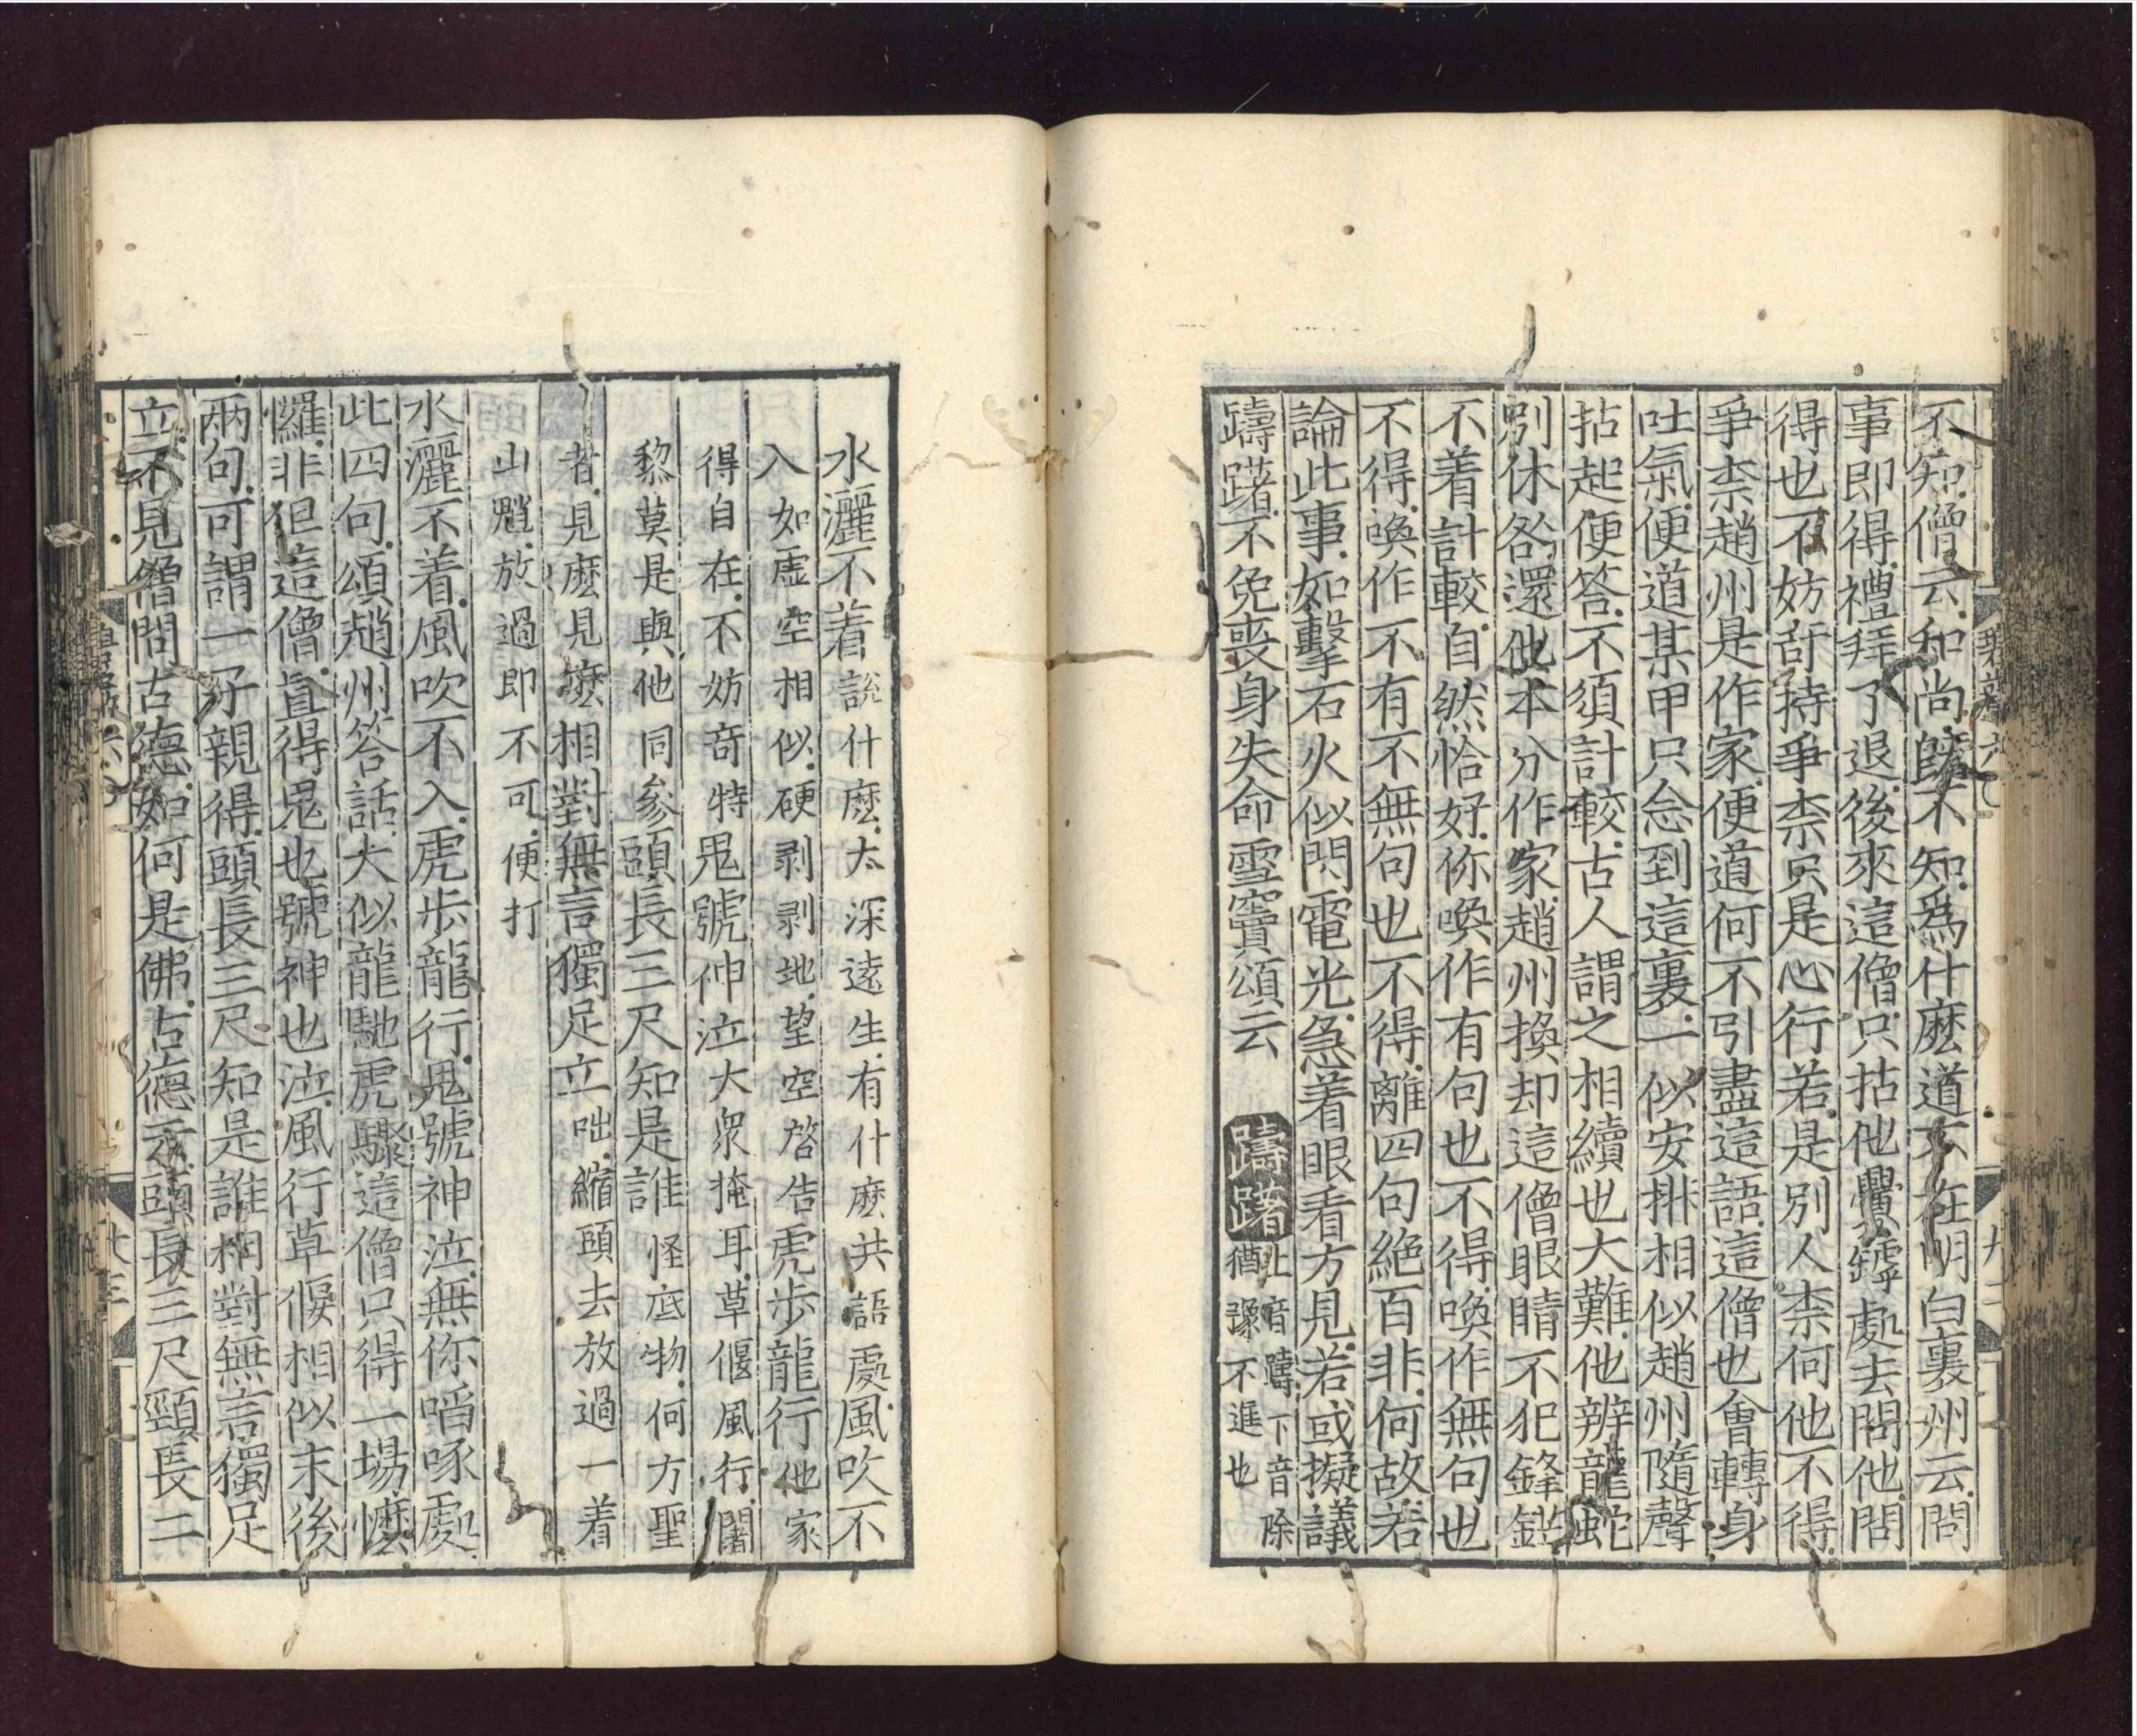 不知僧云和尚旣不知爲什麽道不在明白裏州云問
事即得禮拜了退後來這僧只拈他釁罅處去問他問
得也不妨奇特爭柰只是心行若是別人柰何他不得
爭柰趙州是作家便道何不引盡這語這僧也會轉身
吐氣便道某甲只念到這裏一似安排相似趙州隨聲
拈起便答不須計較古人謂之相續也大難他辨龍蛇
別休咎還他本分作家趙州換却這僧眼睛不犯鋒鋩
不着計較自然恰好你喚作有句也不得喚作無句也
不得喚作不有不無句也不得離四句絶百非何故若
論此事如擊石火似閃電光急着眼看方見若或擬議
躊躇不免喪身失命雪竇頌云 躊躇 上音躊下音除猶豫不進也
水灑不着 說什麽太深遠生有什麽共語處 風吹不
入 如虛空相似硬剥剥地望空啓告 虎步龍行 他家
得自在不妨奇特 鬼號神泣 大衆掩耳草偃風行闍
黎莫是與他同參 頭長三尺知是誰 怪底物何方聖
者見麽見麽 相對無言獨足立 咄縮頭去放過一着
山魈放過即不可便打
水灑不着風吹不入虎步龍行鬼號神泣無你啗啄處
此四句頌趙州答話大似龍馳虎驟這僧只得一場懡
㦬非但這僧直得鬼也號神也泣風行草偃相似末後
兩句可謂一子親得頭長三尺知是誰相對無言獨足
立不見僧問古德如何是佛古德云頭長三尺頸長二